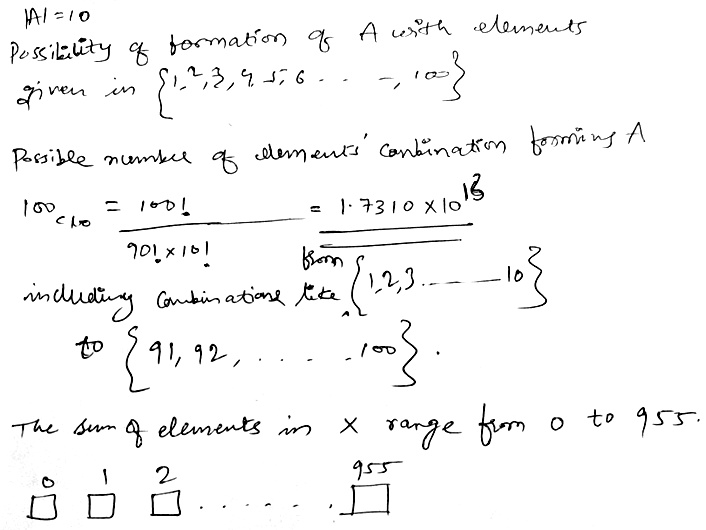 |A| = 10
Possibility of formation of A with elements
given in {1, 2, 3, 4, 5, 6 . . . -, 100}
Possible number of elements' combination forming A
100c10 = 100! / 90! × 10! = 1.7310 × 10^13
including combinations like from {1, 2, 3 ....... 10}
to {91, 92, . . . . . 100}.
The sum of elements in X range from 0 to 955.
0 1 2 . . . . . . 955